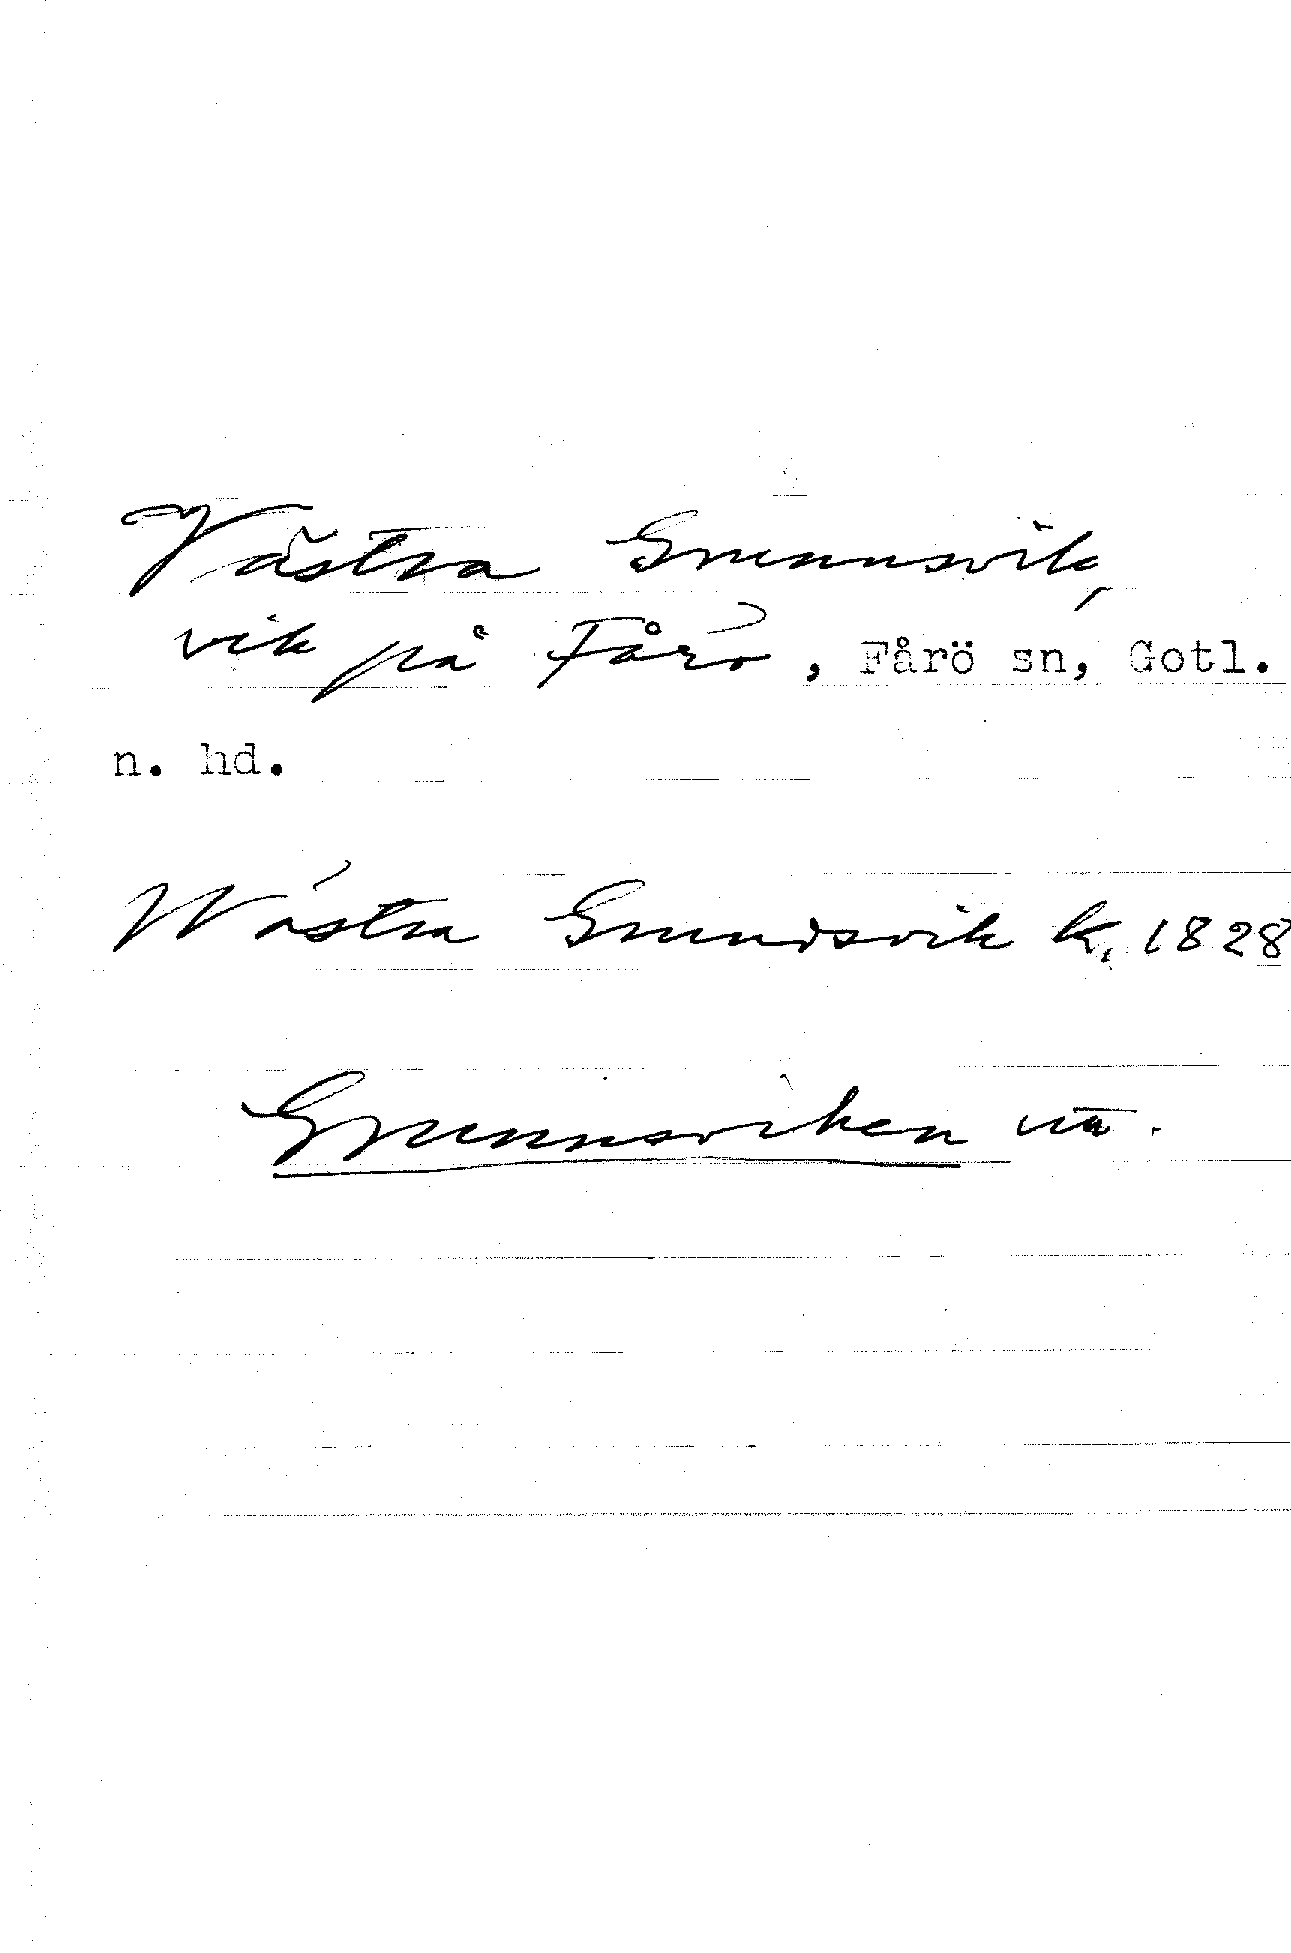 Västra Grunnsvik,
vik på Fårö, Fårö sn, Gotl.
n. hd.
Wästra Grundsvik k. 1828
Grunnsviken